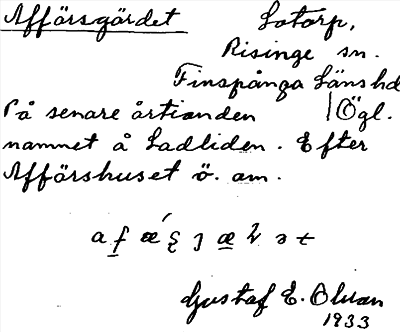 Affärsgärdet Lotorp,
Risinge sn.
Finspånga Länshd
På senare årtianden /Ögl.
namnet å Ladliden. Efter
Affärshuset ö. am.
Gustaf E. Olsson
1933